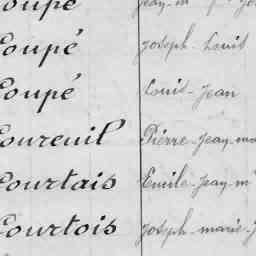 Coupé Joseph-Louis
Coupé Louis-Jean
Coureuil Pierre-Jean-
Courtais Emile-Jean-M
Courtois Joseph-marie-